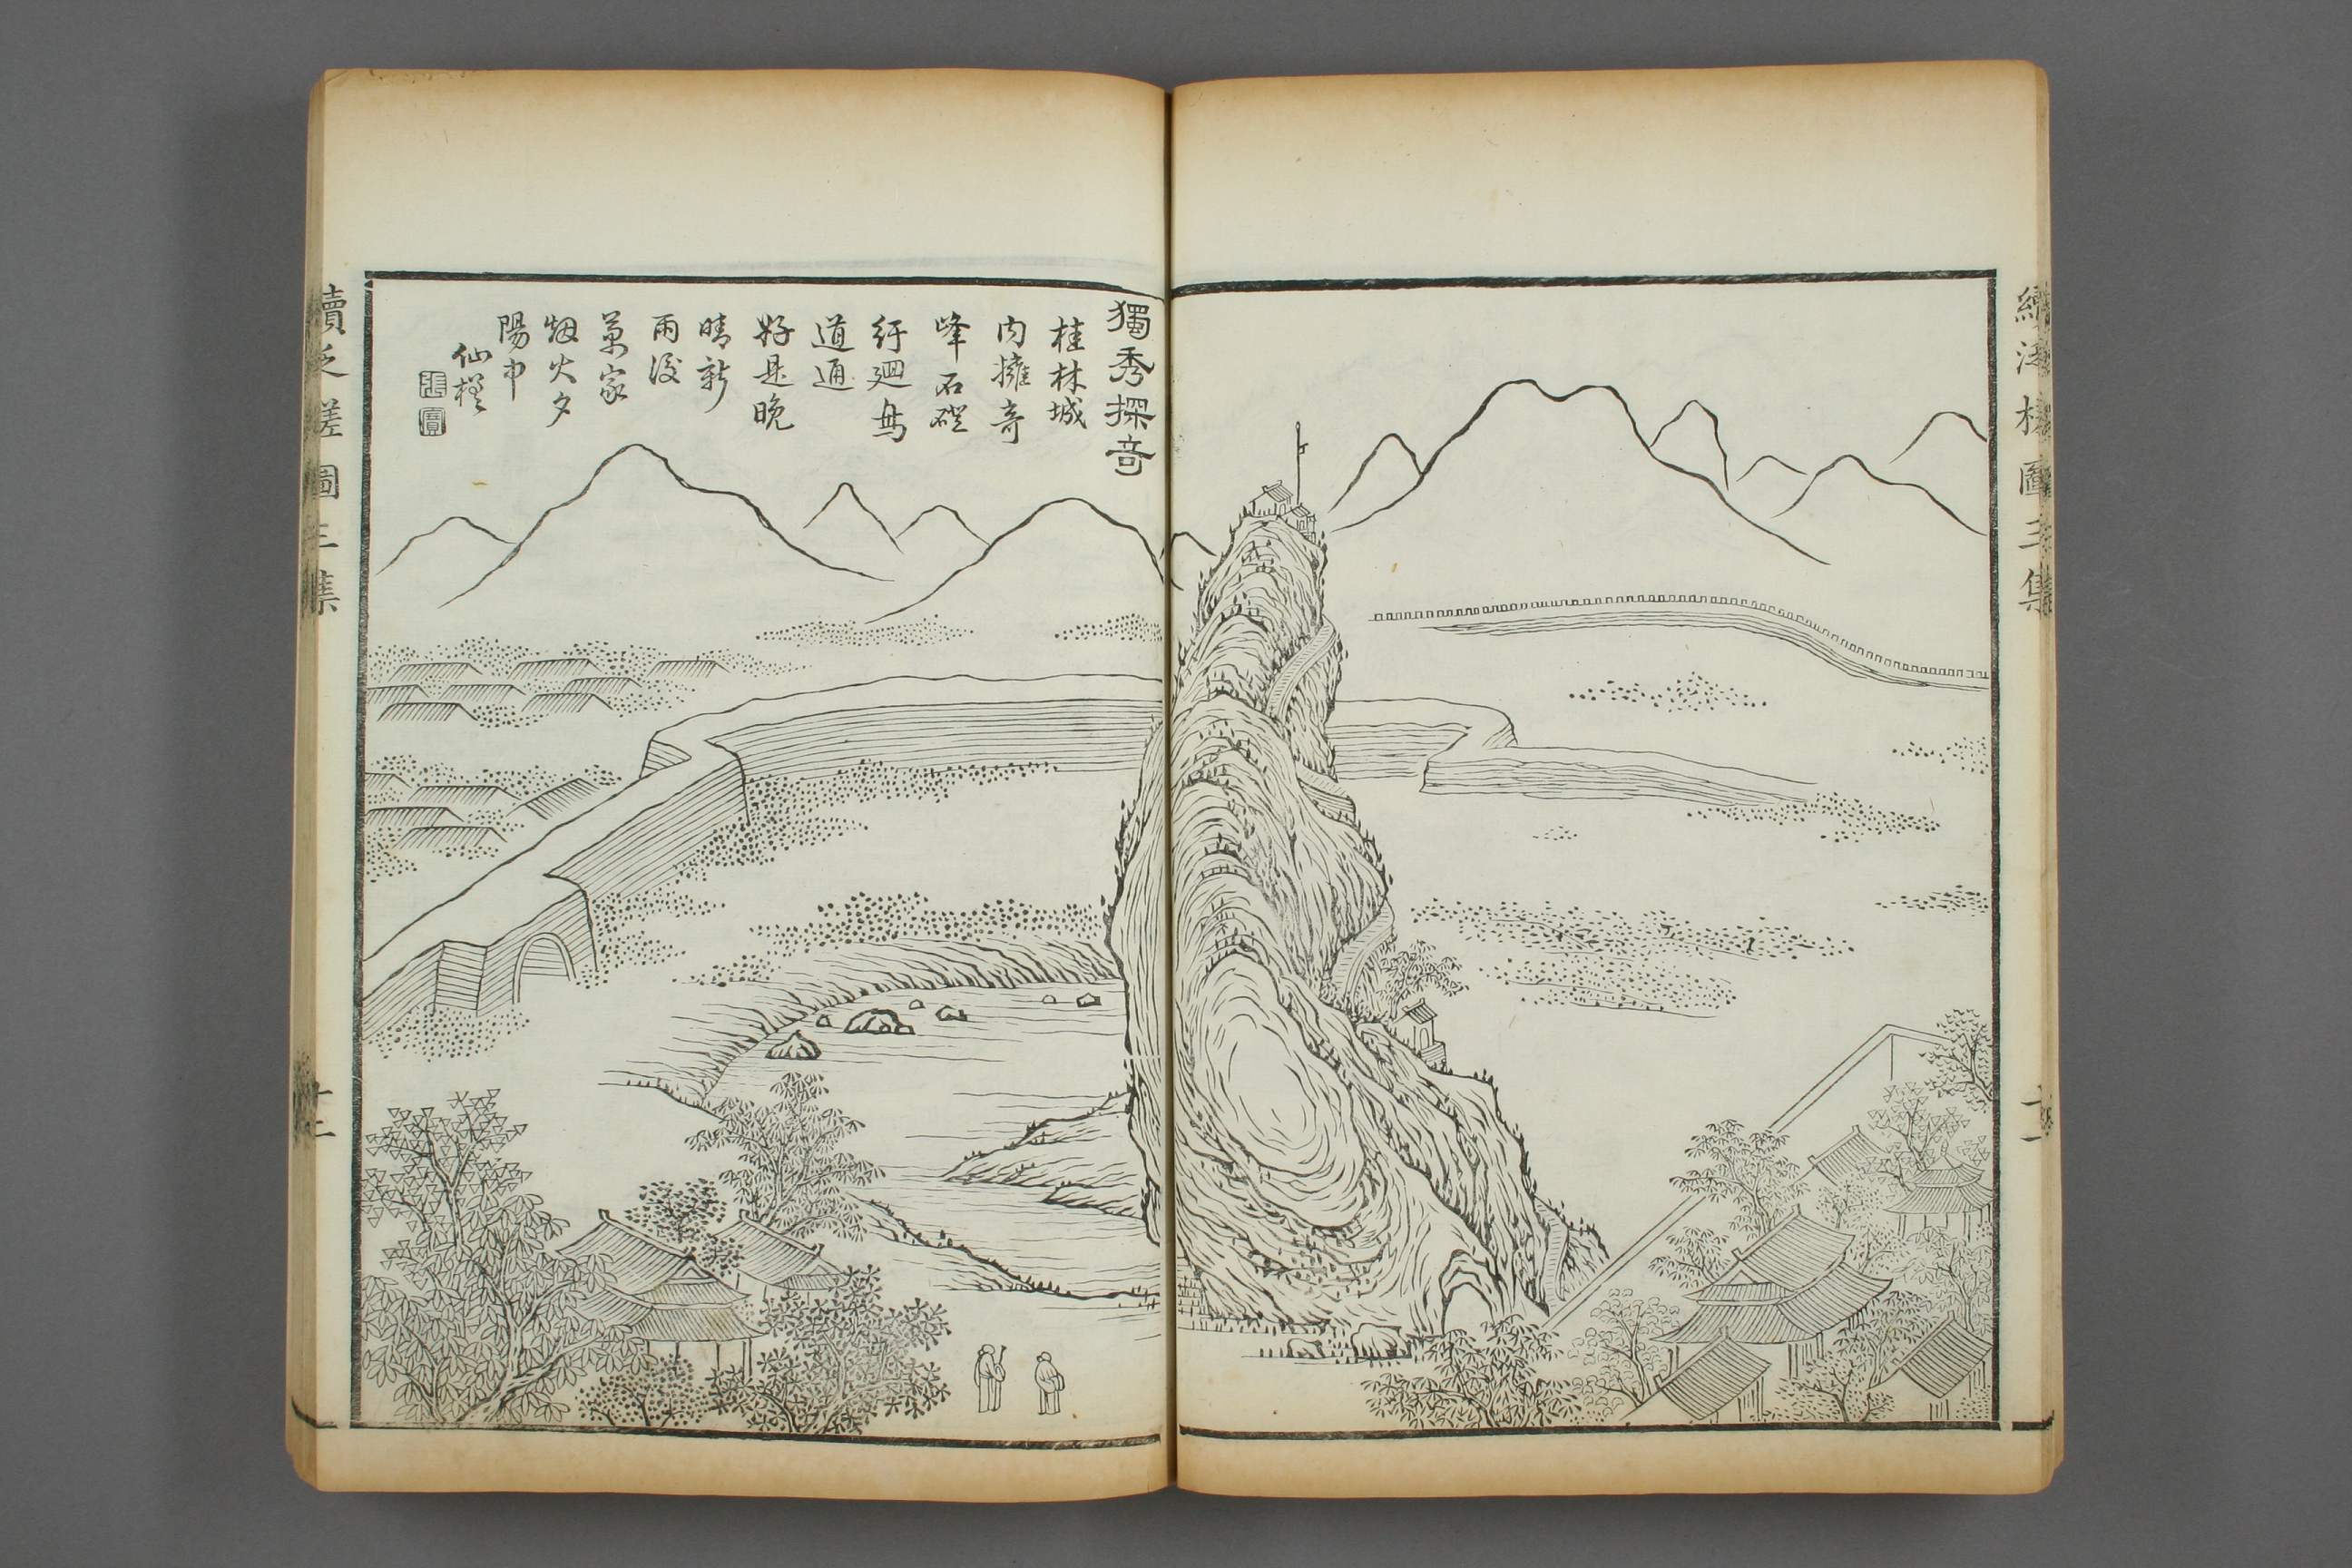 續泛槎圖三集
獨秀探奇
桂林城
内擁奇
峰石磴
紆廻鳥
道通
好是晚
晴新
雨後
萬家
烟火夕
陽中
仙槎
張
寶
續泛槎圖三集
十二